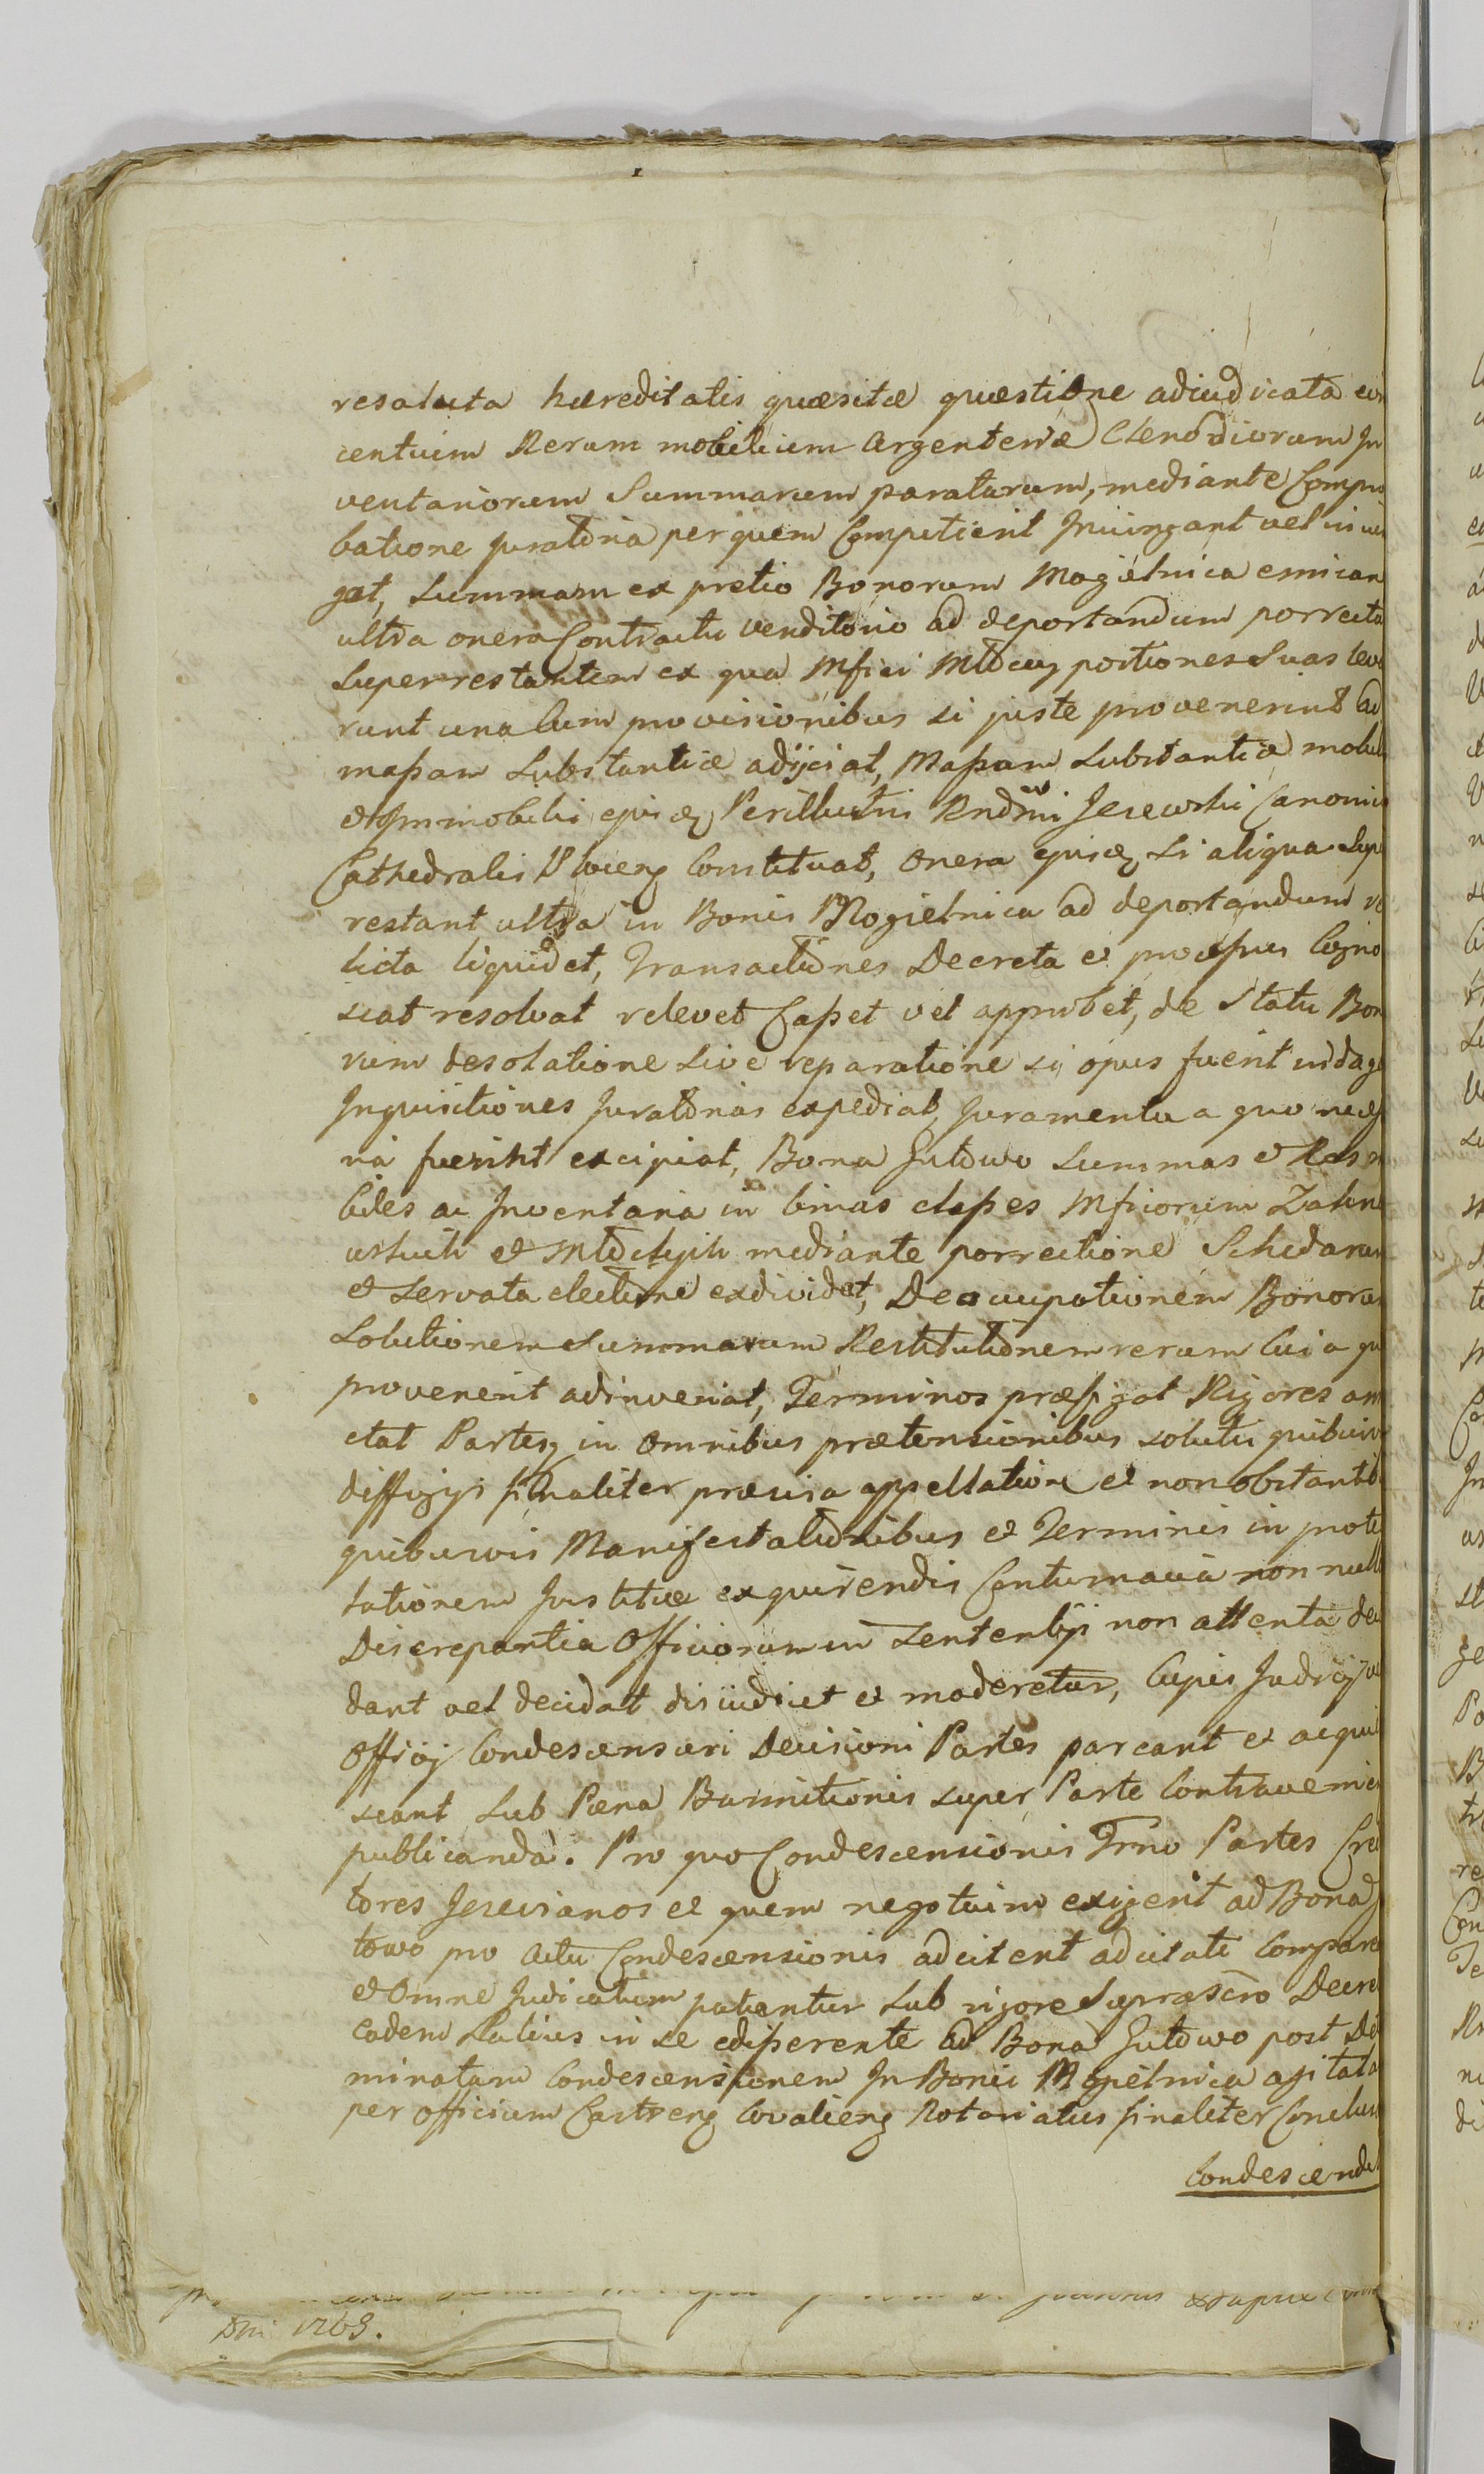 resoluta hæreditatis quæsitæ quæstione adiudicata con
centuim Rerum mobilium Argenteriæ Clenodiorum In
ventariorum Summarum paratarum, mediante Compro
batione Juratoria per quem Competierit Iniungant vel iniun
gat, Summam ex pretio Bonorum Mogielnica emican
ultra onera Contractu venditorio ad deportandum porrecta
Superrestantem ex qua Mfici portiones Suas leva
runt una Cum provisionibus si juste provenerint ad
maßam Substantiæ adijciat, Maßam Substantiæ mobil
et Immobilis ejusdem Perillustris Rndmi Jezewski Canonici
Cathedralis Constituat, Onera si aliqua Supe
restant ultra in Bonis Mogielnica ad deportandum re
licta liquidet, Transactiones Decreta et proceßus Cogno
scat resolvat relevet Caßet vel approbet, de Statu Bono
rum desolatione Sive reparatione si opus fuerit indaget
Inquisitiones Juratorias expediat, Juramenta a quo neceß
ria fuerint excipiat, Bona Gutowo Summas et Res mo
biles ac Inventaria in binas claßes Mficorum
et mediante porrectione Schedarum
et servata electione exdividat, Deoccupationem Bonorum
Solutionem Summarum Restitutionem rerum Cui a quo
provenerit adinveniat, Terminos præfigat Rigores an
ctat Partesq in Omnibus prætensionibus solutis quibusvis
diffugijs finaliter præcisa appellatione et non obstantib
quibusvis Manifestationibus et Terminis in prote
lationem Justitiæ exquirendis Contumacia non null
Discrepantia Officiorum in Sententijs non attenta deci
dant vel decidat diiudicet et moderetur, Cujus Judicij vel
Officij Condescensuri Decisioni Partes pareant et acquie
scant Sub Pœna Bannitionis super Parte Contraveniente
publicanda. Pro quo Condescensionis Trno Partes Credi
tores Jezevianos et quem negotium exigerit ad Bona Gu
towo pro Actu Condescensionis adcitent adcitati Compare
et Omne Judicatum patiantur Sub rigore Suprascro Decre
eodem Latius in se edißerente ad Bona Gutowo post De
minatam Condescensionem In Bonis Mogielnica agitata
per Officium Castrens Covaliens Notariatus finaliter Conclus
Condescendet
Dni 1769.